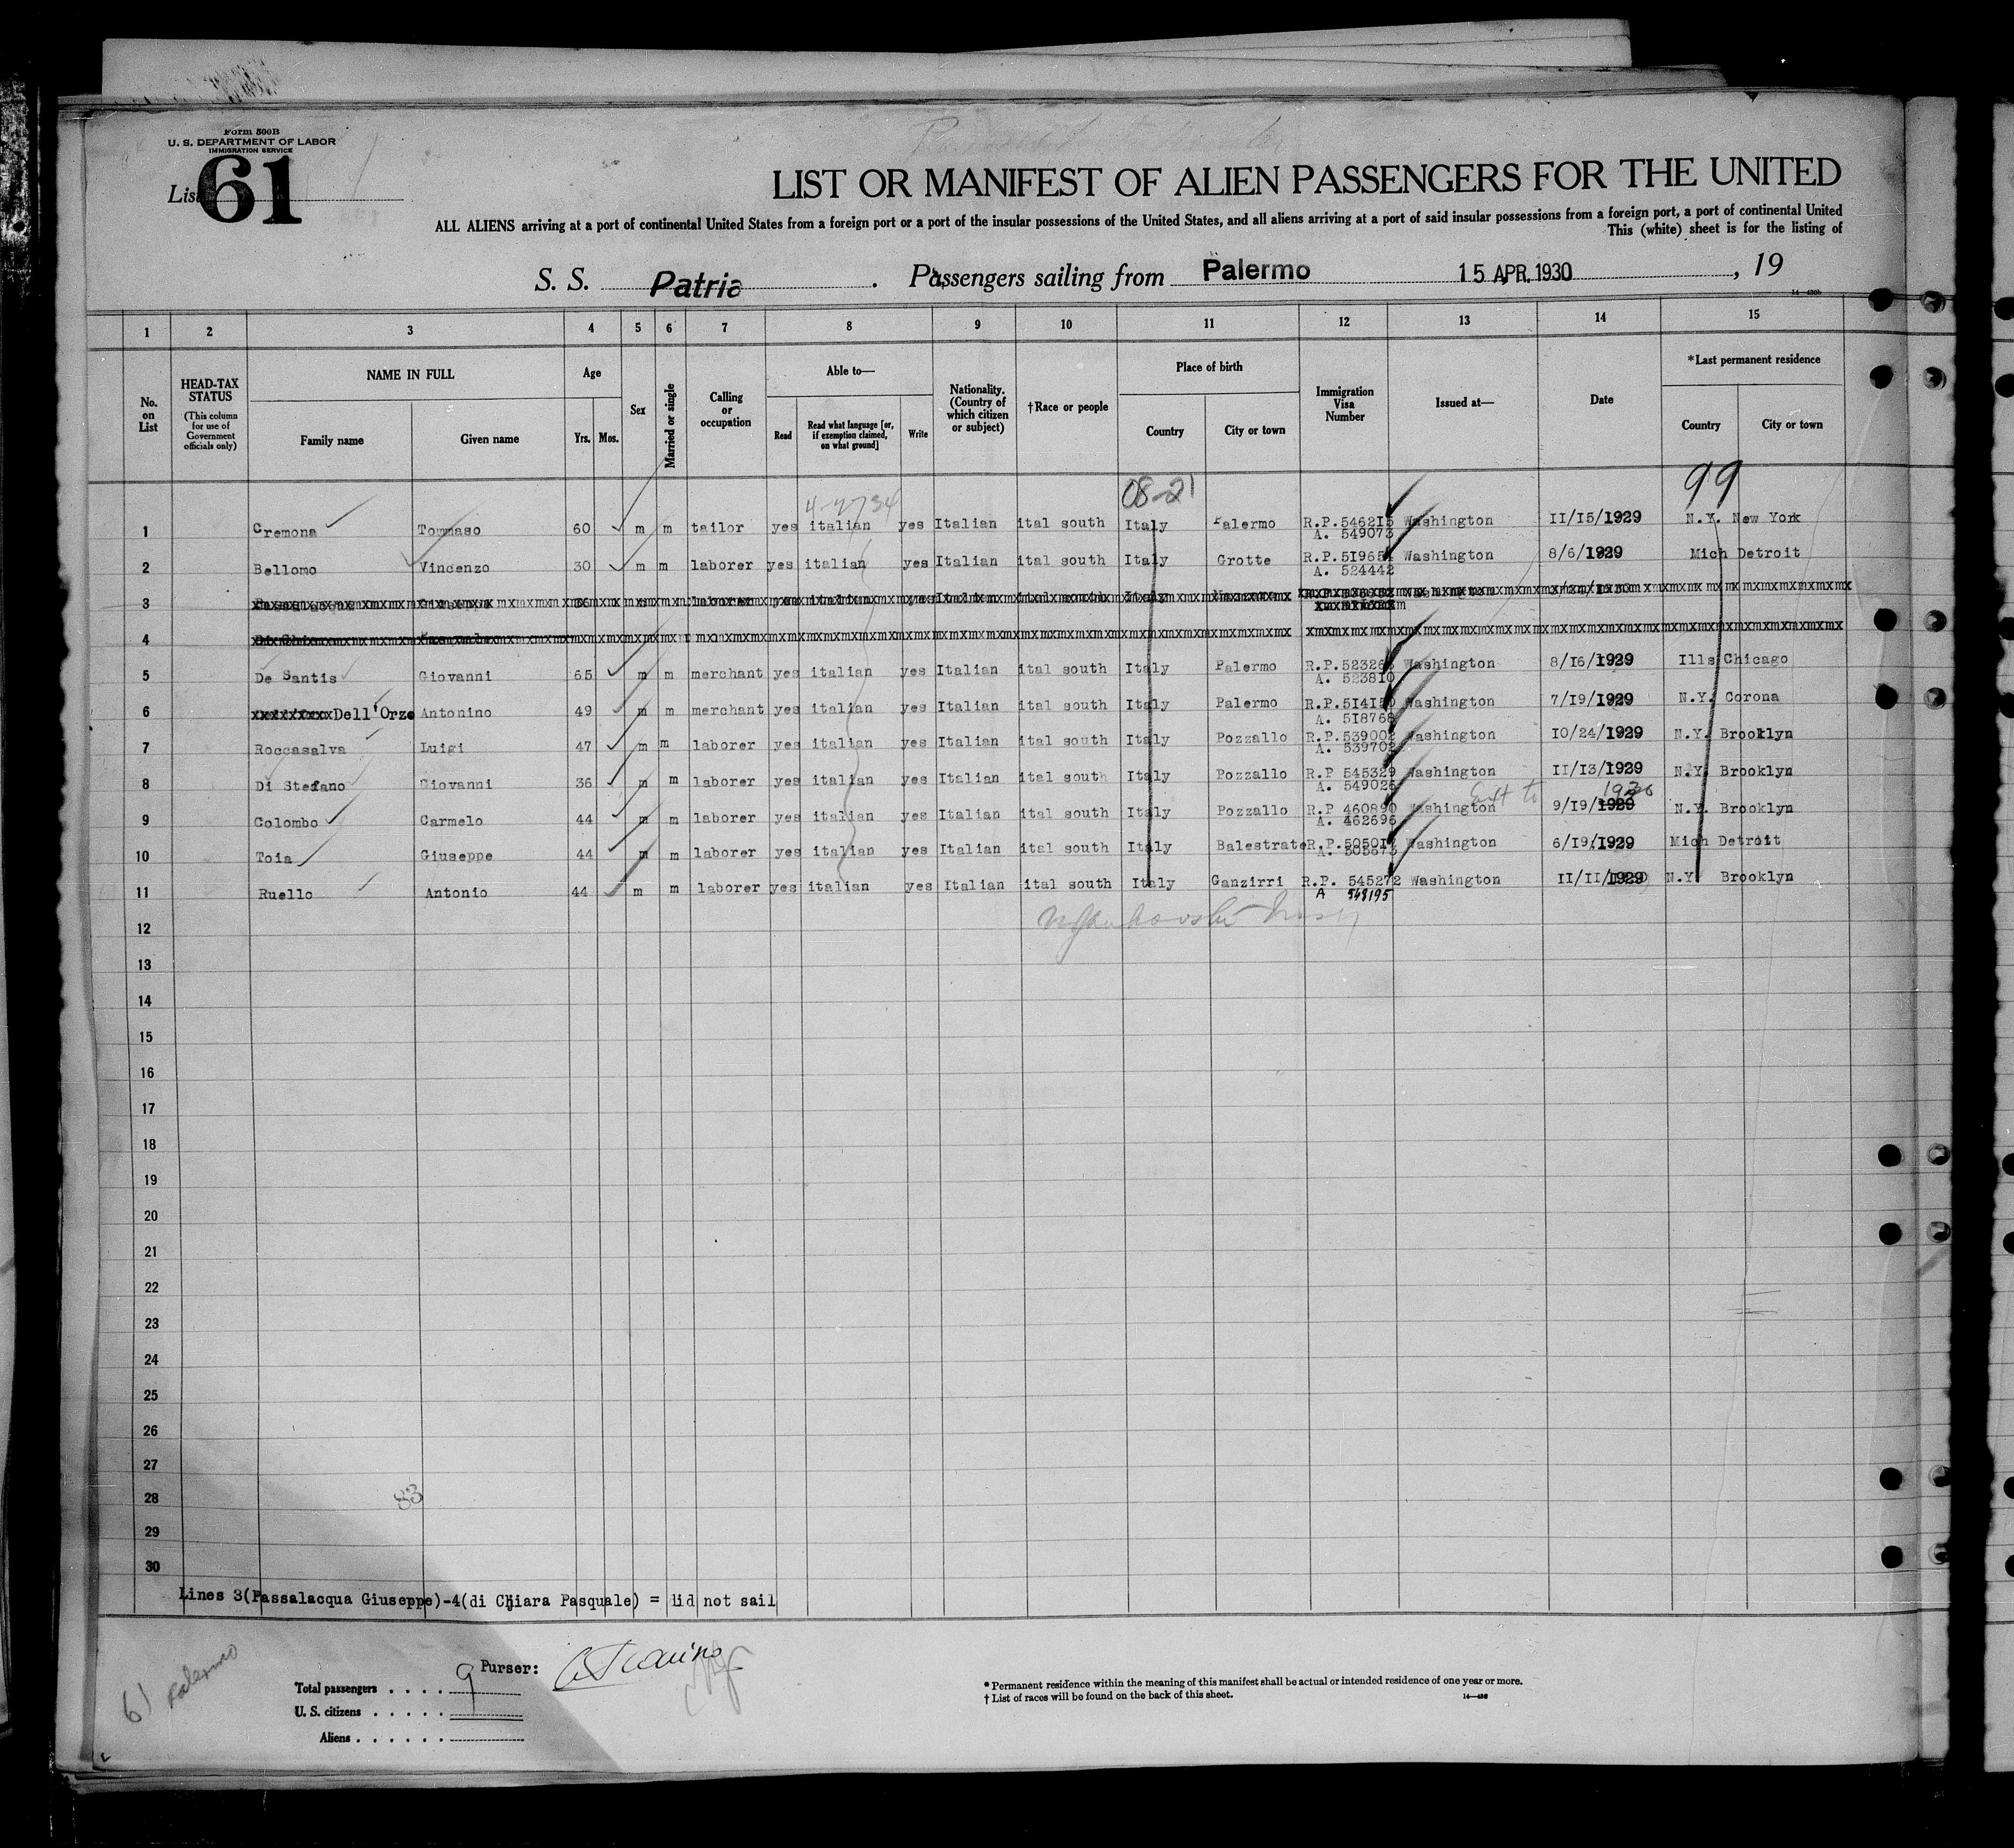 Form 500B
U. S. DEPARTMENT OF LABOR
IMMIGRATION SERVICE
List 61
LIST OR MANIFEST OF ALIEN PASSENGERS FOR THE UNITED
ALL ALIENS arriving at a port of continental United States from a foreign port or a port of the insular possessions of the United States, and all aliens arriving at a port of said insular possessions from a foreign port, a port of continental United
This (white) sheet is for the listing of
S. S. Patria. Passengers sailing from Palermo 15 APR. 1930, 19
1 2 3 4 5 6 7 8 9 10 11 12 13 14 15
No. on List
HEAD-TAX STATUS (This column for use of Government officials only)
NAME IN FULL Family name Given name
Age Yrs. Mos.
Sex
Married or single
Calling or occupation
Able to— Read Read what language [or, if exemption claimed, on what ground] Write
Nationality. (Country of which citizen or subject)
†Race or people
Place of birth Country City or town
Immigration Visa Number
Issued at—
Date
*Last permanent residence Country City or town
08-21 99
1 Cremona Tommaso 60 m m tailor yes italian yes Italian ital south Italy Palermo R.P.546215 Washington 11/15/1929 N.Y. New York
A. 549073
2 Bellomo Vincenzo 30 m m laborer yes italian yes Italian ital south Italy Grotte R.P.519654 Washington 8/6/1929 Mich Detroit
A. 524442
3
4
5 De Santis Giovanni 65 m m merchant yes italian yes Italian ital south Italy Palermo Washington 8/16/1929 Ills Chicago
A. 523810
6 xxxxxxxxx Dell'Orze Antonino 49 m m merchant yes italian yes Italian ital south Italy Palermo Washington 7/19/1929 N.Y. Corona
A. 518768
7 Roccasalva Luigi 47 m m laborer yes italian yes Italian ital south Italy Pozzallo R.P.539002 Washington 10/24/1929 N.Y. Brooklyn
A. 539702
8 Di Stefano Giovanni 36 m m laborer yes italian yes Italian ital south Italy Pozzallo R.P 545329 Washington 11/13/1929 N.Y. Brooklyn
A. 549026
1930
9 Colombo Carmelo 44 m m laborer yes italian yes Italian ital south Italy Pozzallo R.P 460890 Washington 9/19/1929 N.Y. Brooklyn
A. 462696
10 Toia Giuseppe 44 m m laborer yes italian yes Italian ital south Italy Balestrate Washington 6/19/1929 Mich Detroit
11 Ruello Antonio 44 m m laborer yes italian yes Italian ital south Italy Ganzirri R.P. 545272 Washington 11/11/1929 N.Y. Brooklyn
A 548195
12
13
14
15
16
17
18
19
20
21
22
23
24
25
26
27
28 83
29
30
Lines 3(Passalacqua Giuseppe)-4(di Chiara Pasquale) = did not sail
61 Palermo
Purser:
Total passengers . . . . 9
U. S. citizens . . . . .
Aliens . . . . . .
* Permanent residence within the meaning of this manifest shall be actual or intended residence of one year or more.
† List of races will be found on the back of this sheet.